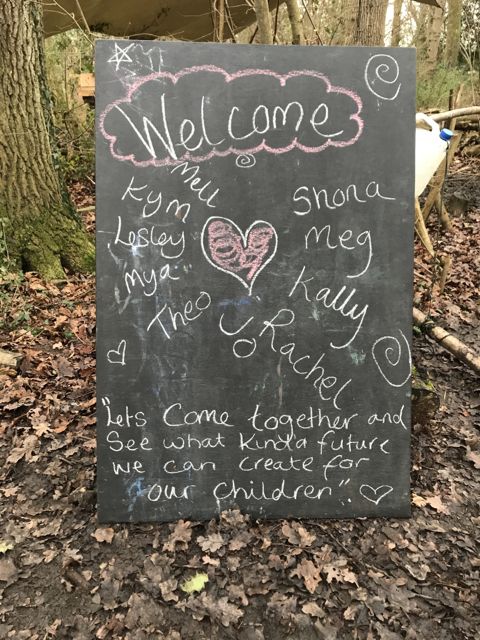 Welcome
Mell
Kym
Shona
Lesley
Meg
Mya
Kally
Theo
Jo
Rachel
"Lets Come together and
See what Kinda future
we can create for
our children".